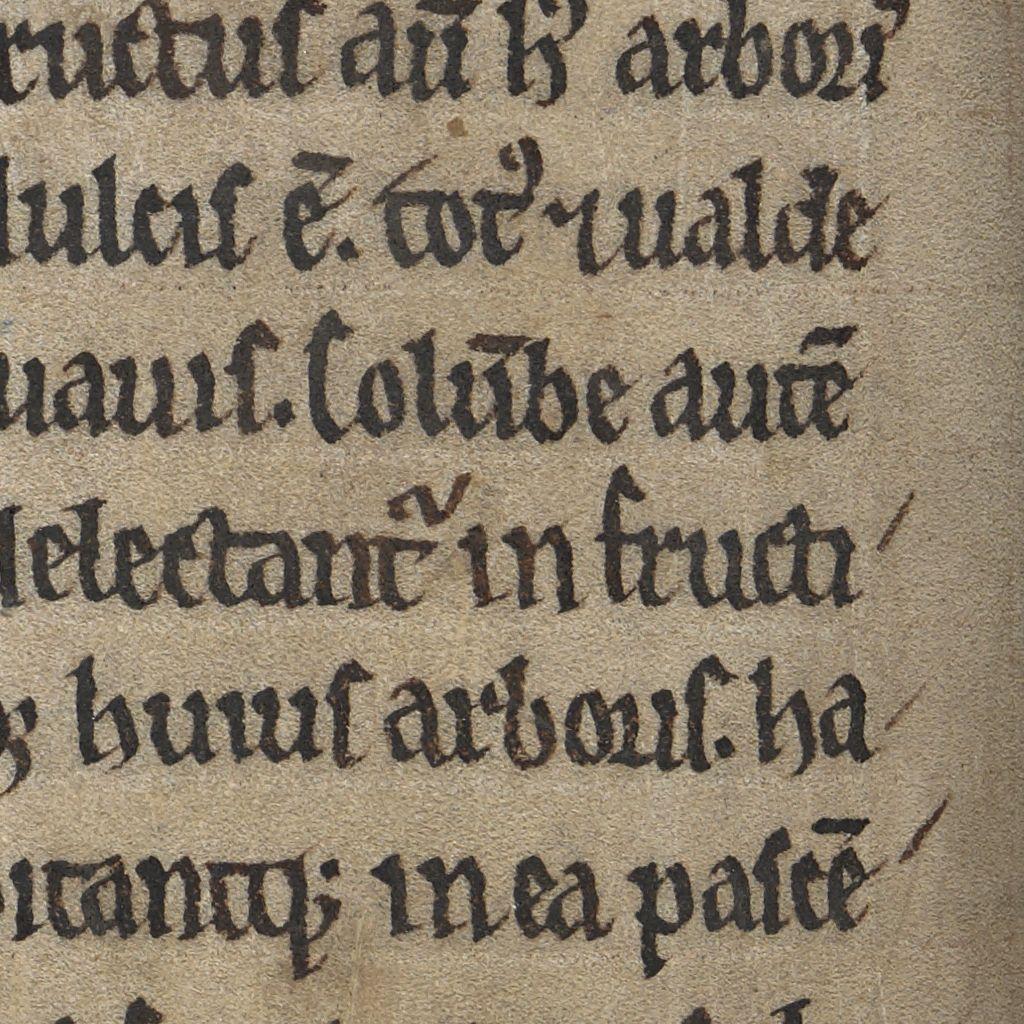 ructus aū h᷒ arbori᷒
dulcis ē. totꝰ ⁊ ualde
uauis. Colūbe autē
delectant᷑ in fructi
bꝫ huius arboris. ha
bitantqꝫ in ea pascē